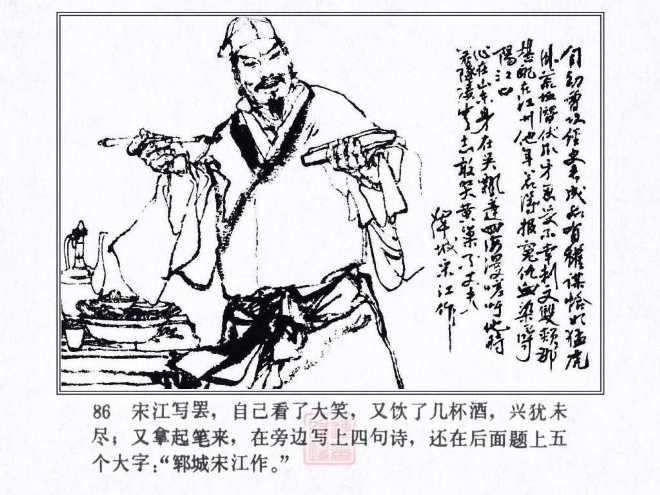 自幼曾攻经史长成亦有權谋恰如猛虎
卧荒坵潛伏爪牙忍受不幸刺文雙頰那
堪配在江州他年若得报冤仇血染浔
陽江口
心在山东身在吴飘蓬四海漫嗟吁他時
若隧凌云志敢笑黄巢不丈夫
郓城宋江作
86 宋江写罢，自己看了大笑，又饮了几杯酒，兴犹未
尽；又拿起笔来，在旁边写上四句诗，还在后面题上五
个大字：“郓城宋江作。”